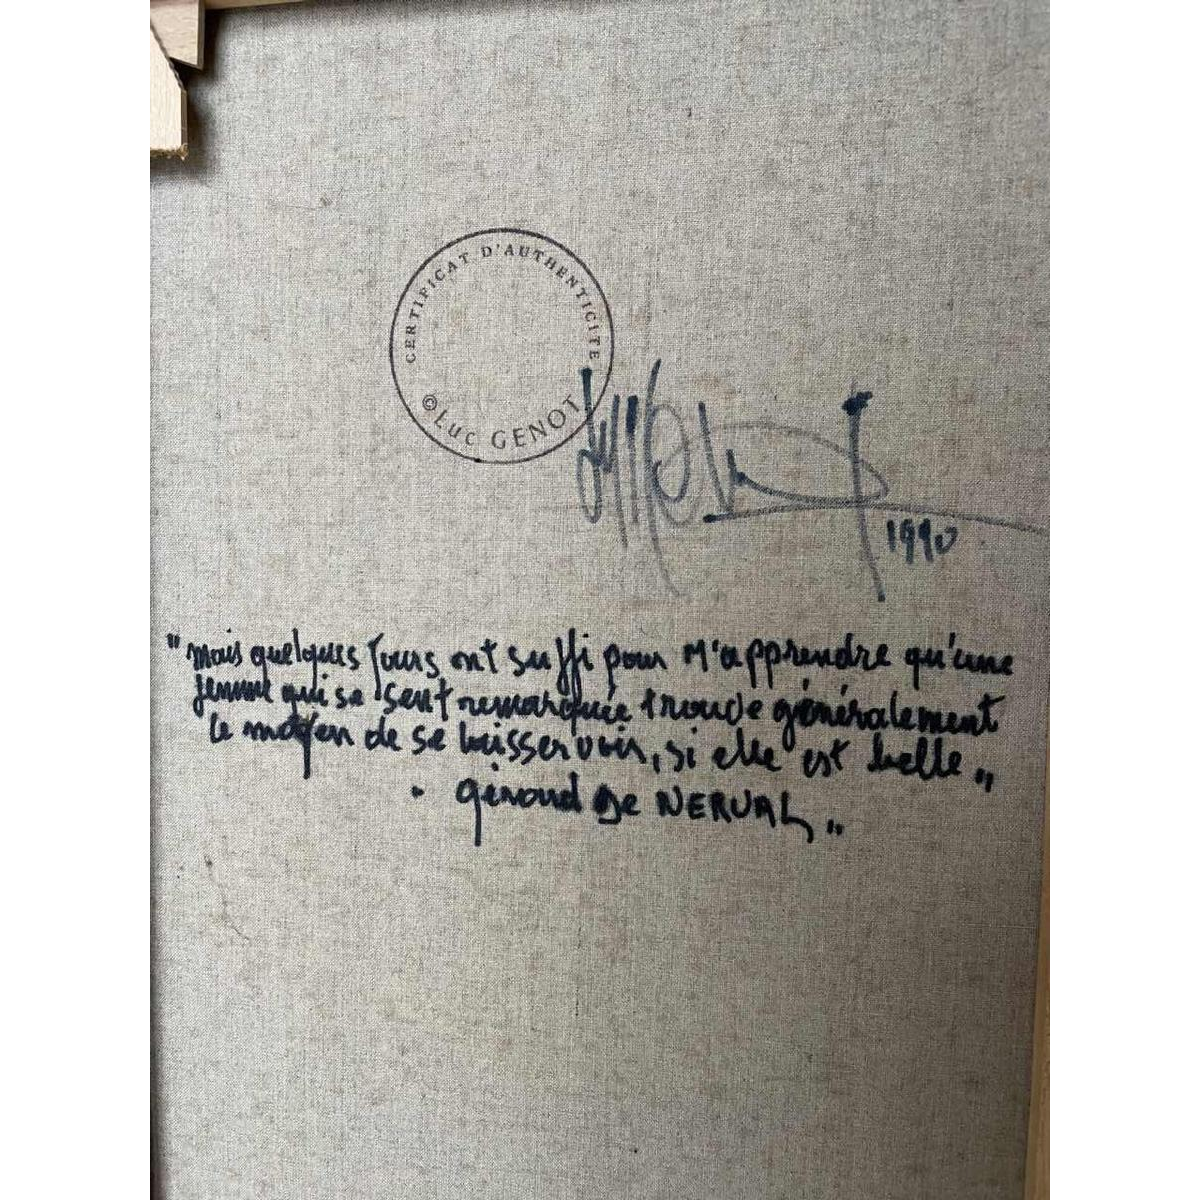 CERTIFICAT D'AUTHENTICITE
©Luc GENOT
1990
"Mais quelques Jours ont suffi pour M'apprendre qu'une
femme qui se sent remarquée trouve généralement
le moyen de se laisser voir, si elle est belle„
. Gérard De NERVAL„